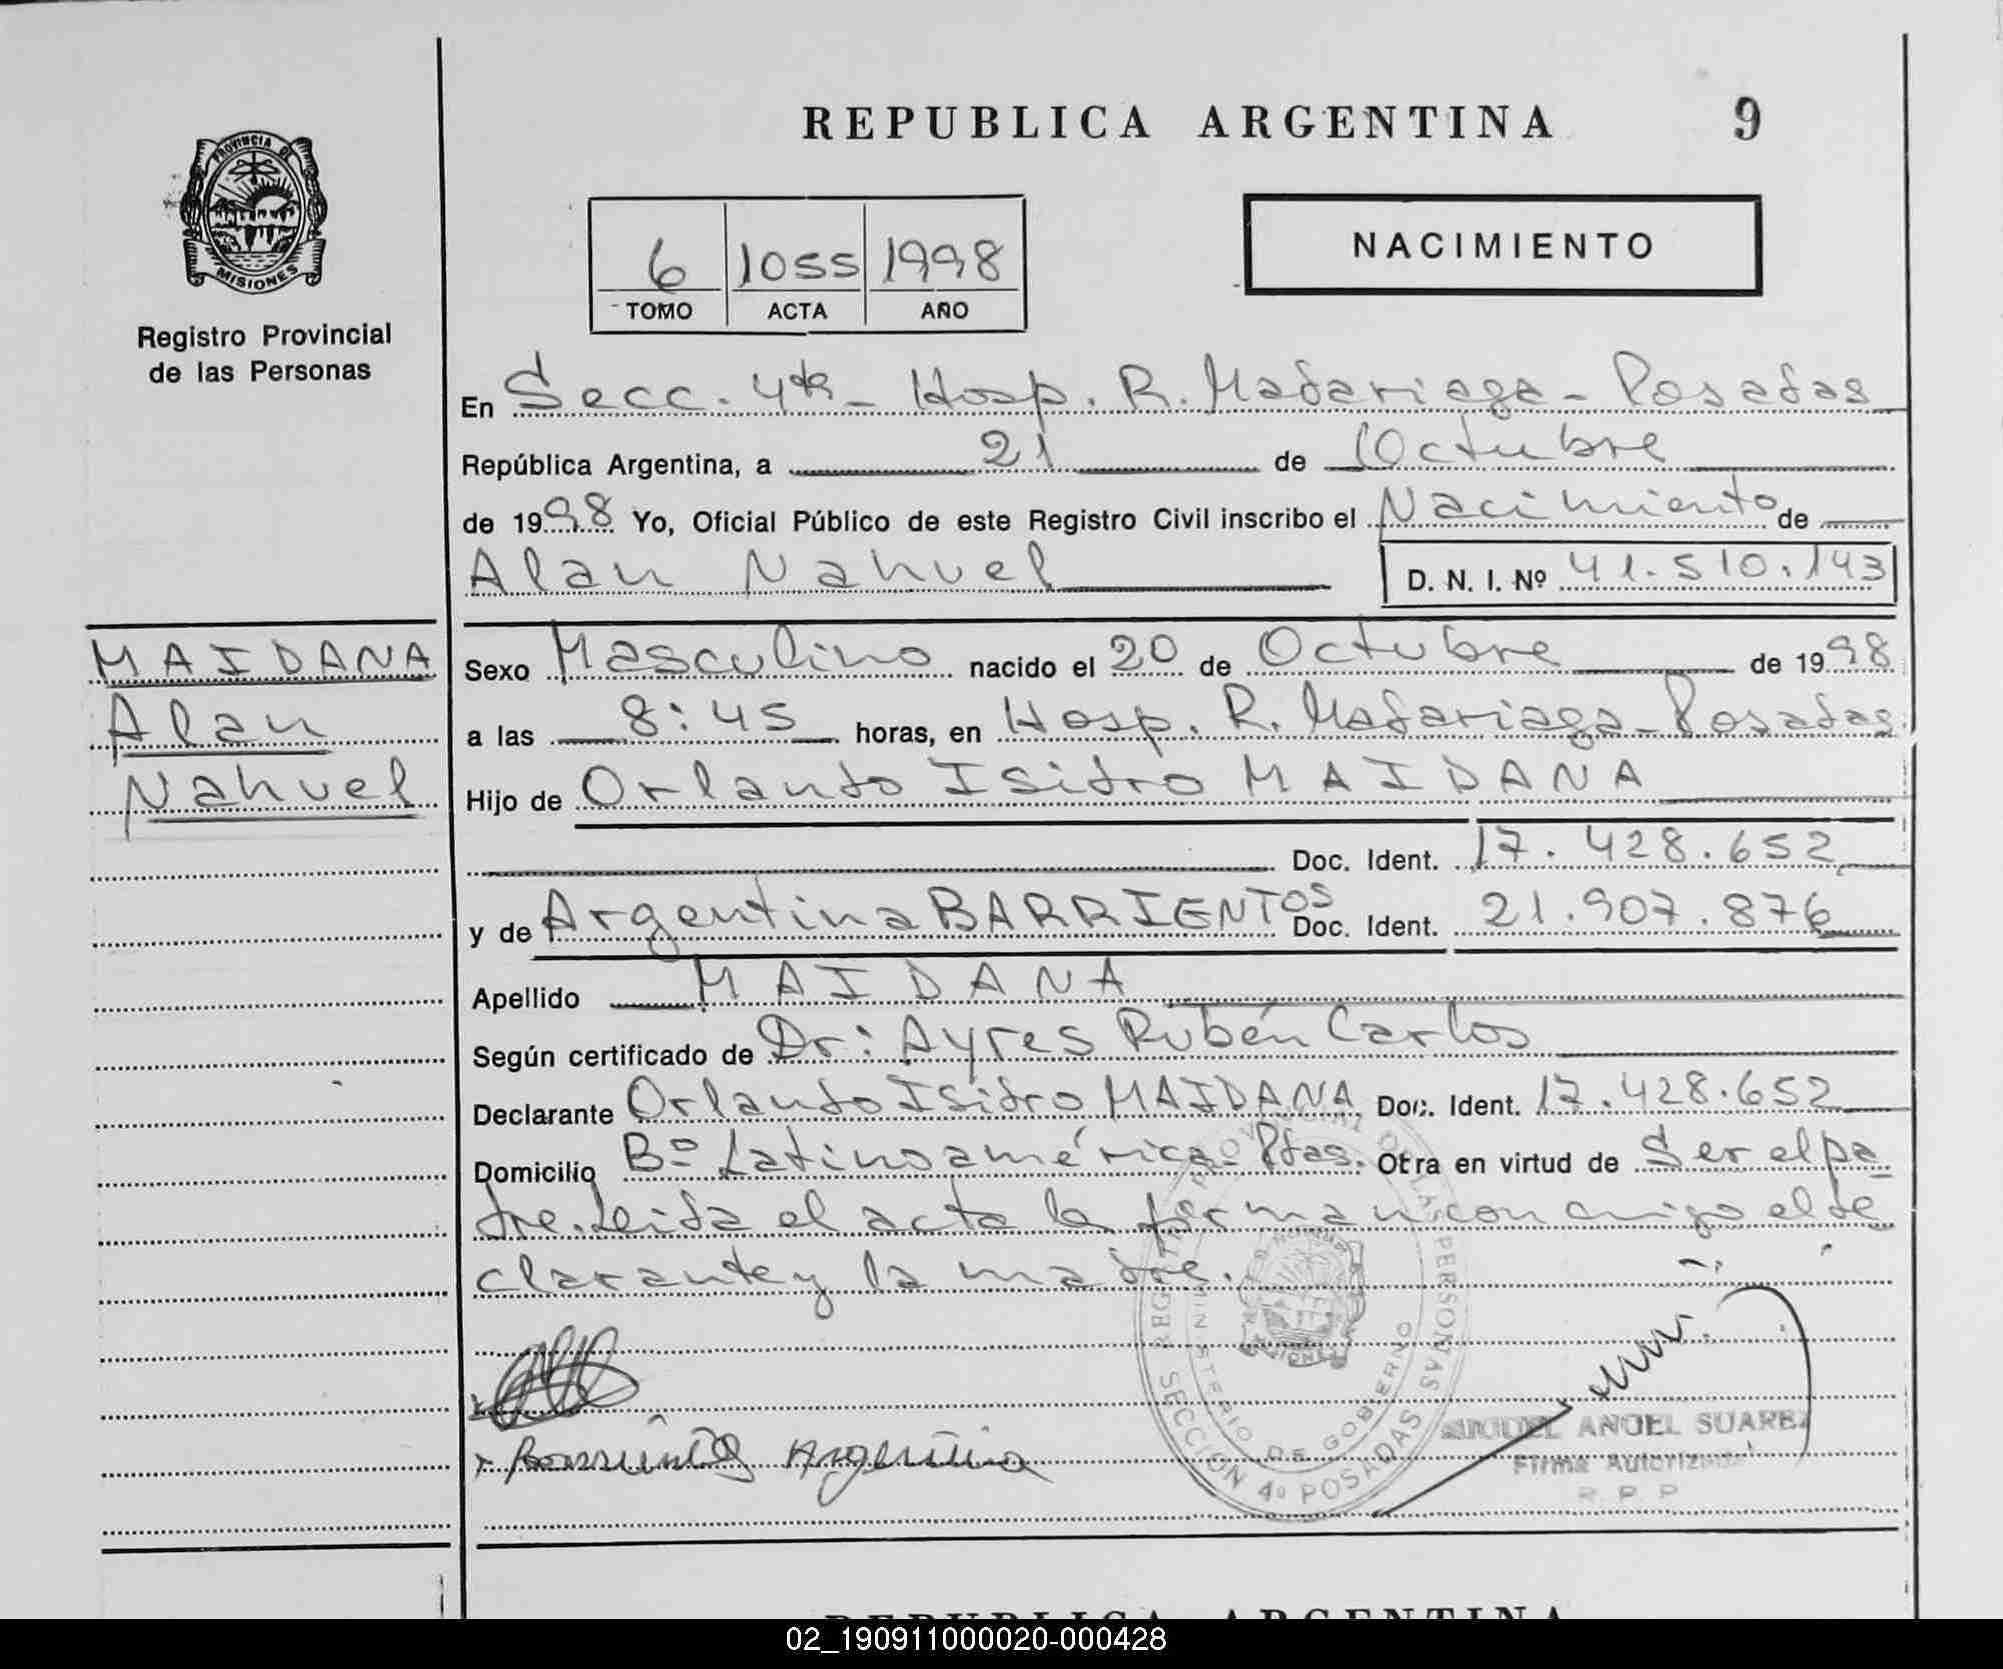 REPUBLICA ARGENTINA 9
PROVINCIA DE
MISIONES
Registro Provincial
de las Personas
6 1055 1998
TOMO ACTA AÑO
NACIMIENTO
En Secc. 4ta - Hosp. R. Madariaga - Posadas
República Argentina, a 21 de Octubre
de 1998 Yo, Oficial Público de este Registro Civil inscribo el Nacimiento de
Alan Nahuel D. N. I. Nº 41.510.143
MAIDANA
Alan
Nahuel
Sexo Masculino nacido el 20 de Octubre de 1998
a las 8:45 horas, en Hosp. R. Madariaga - Posadas
Hijo de Orlando Isidro MAIDANA
Doc. Ident. 17.428.652
y de Argentina BARRIENTOS Doc. Ident. 21.907.876
Apellido MAIDANA
Según certificado de Dr: Ayres Rubén Carlos
Declarante Orlando Isidro MAIDANA Doc. Ident. 17.428.652
Domicilio Bº Latinoamérica - Pdas. Otra en virtud de Ser el pa-
dre. Leída el acta la firman con migo el de
clarante y la madre.
REGISTRO PROVINCIAL DE LAS PERSONAS
MINISTERIO DE GOBIERNO
SECCION 4º POSADAS
x Barrientos Argentina
MIGUEL ANGEL SUAREZ
Firma Autorizada
R. P. P
REPUBLICA ARGENTINA
02_190911000020-000428